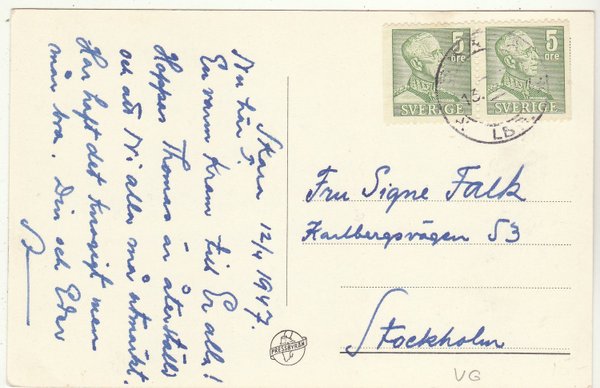 Skara 12/4 1947.
Nu här J.
En varm kram till Er alla!
Hoppas Thomas är återställd
och att Ni alla må utmärkt.
Har haft det knogigt men
mår bra. Din och Eder
5 öre
SVERIGE
5 öre
SVERIGE
LB
Fru Signe Falk
Karlbergsvägen 53
Stockholm
PRESSBYRÅN
VG